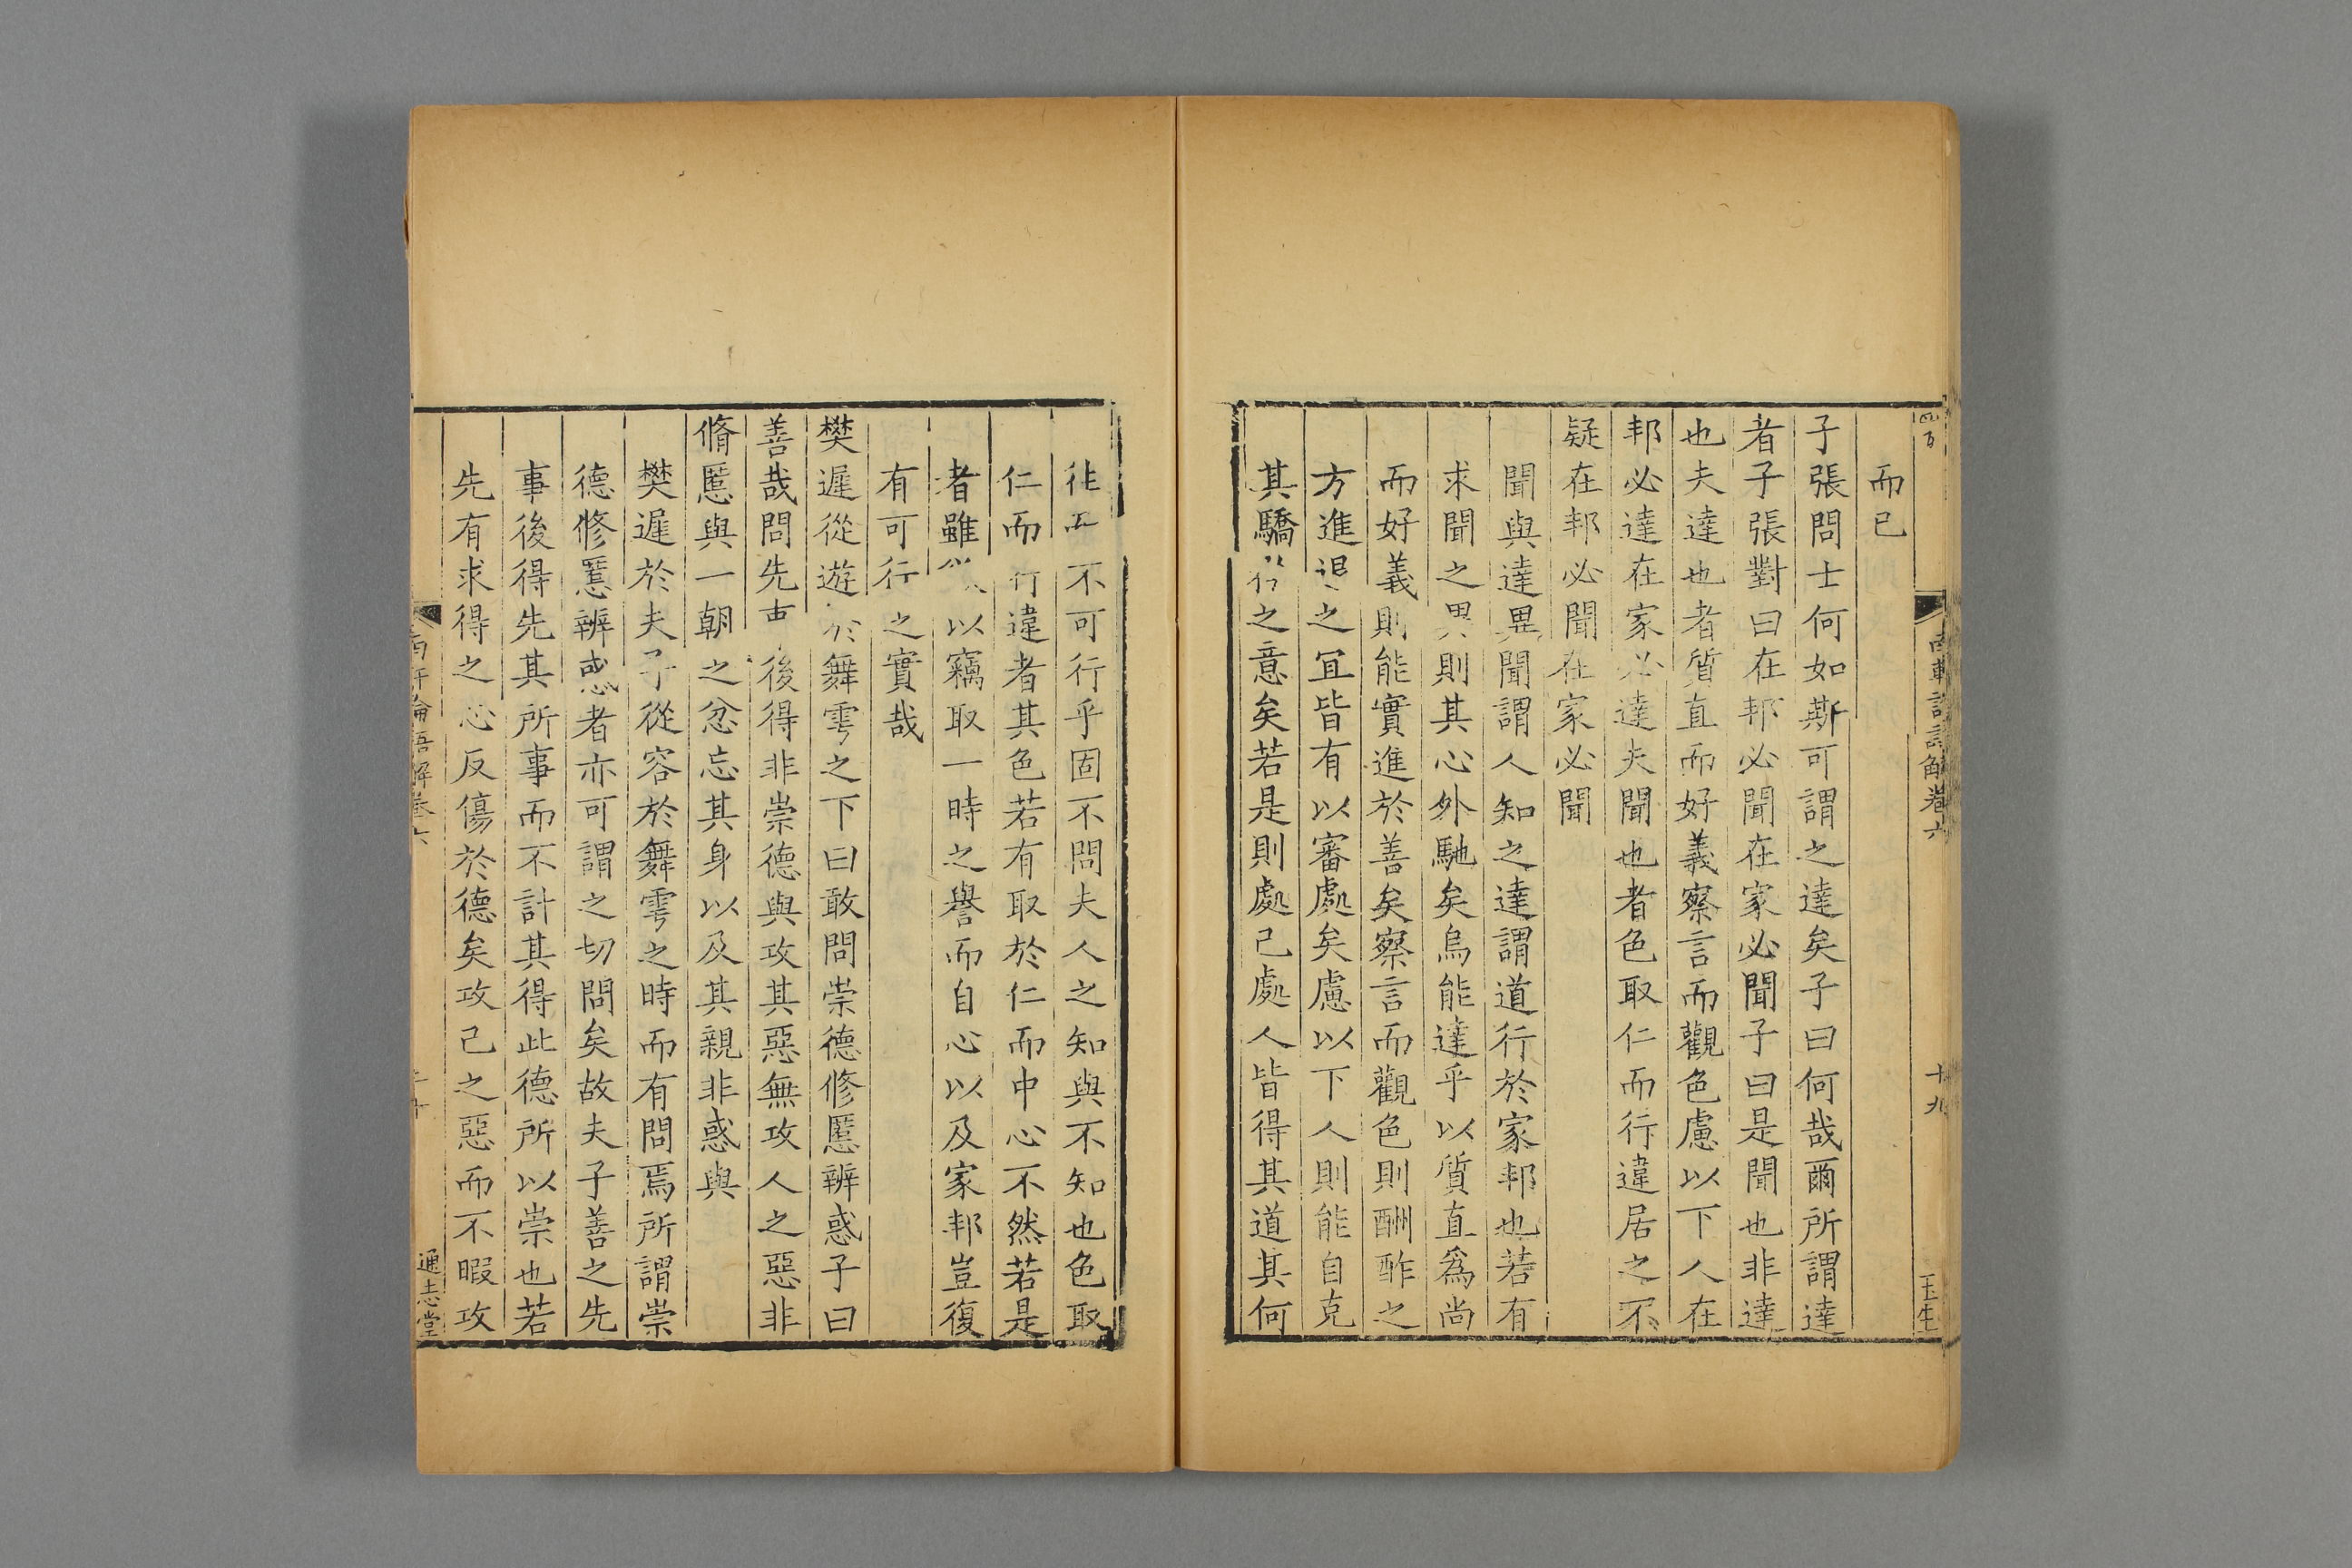 四百
南軒論語解卷六
十九
玉生
而已
子張問士何如斯可謂之達矣子曰何哉爾所謂達
者子張對曰在邦必聞在家必聞子曰是聞也非達
也夫達也者質直而好義察言而觀色慮以下人在
邦必達在家必達夫聞也者色取仁而行違居之不
疑在邦必聞在家必聞
聞與達異聞謂人知之達謂道行於家邦也若有
求聞之異則其心外馳矣烏能達乎以質直爲尚
而好義則能實進於善矣察言而觀色則酬酢之
方進退之宜皆有以審處矣慮以下人則能自克
其驕行之意矣若是則處己處人皆得其道其何
往不可行乎固不問夫人之知與不知也色取
仁而行違者其色若有取於仁而中心不然若是
者雖以竊取一時之譽而自心以及家邦豈復
有可行之實哉
樊遲從遊於舞雩之下曰敢問崇德修慝辨惑子曰
善哉問先事後得非崇德與攻其惡無攻人之惡非
脩慝與一朝之忿忘其身以及其親非惑與
樊遲於夫子從容於舞雩之時而有問焉所謂崇
德修慝辨惑者亦可謂之切問矣故夫子善之先
事後得先其所事而不計其得此德所以崇也若
先有求得之心反傷於德矣攻己之惡而不暇攻
南軒論語解卷六
二十
通志堂